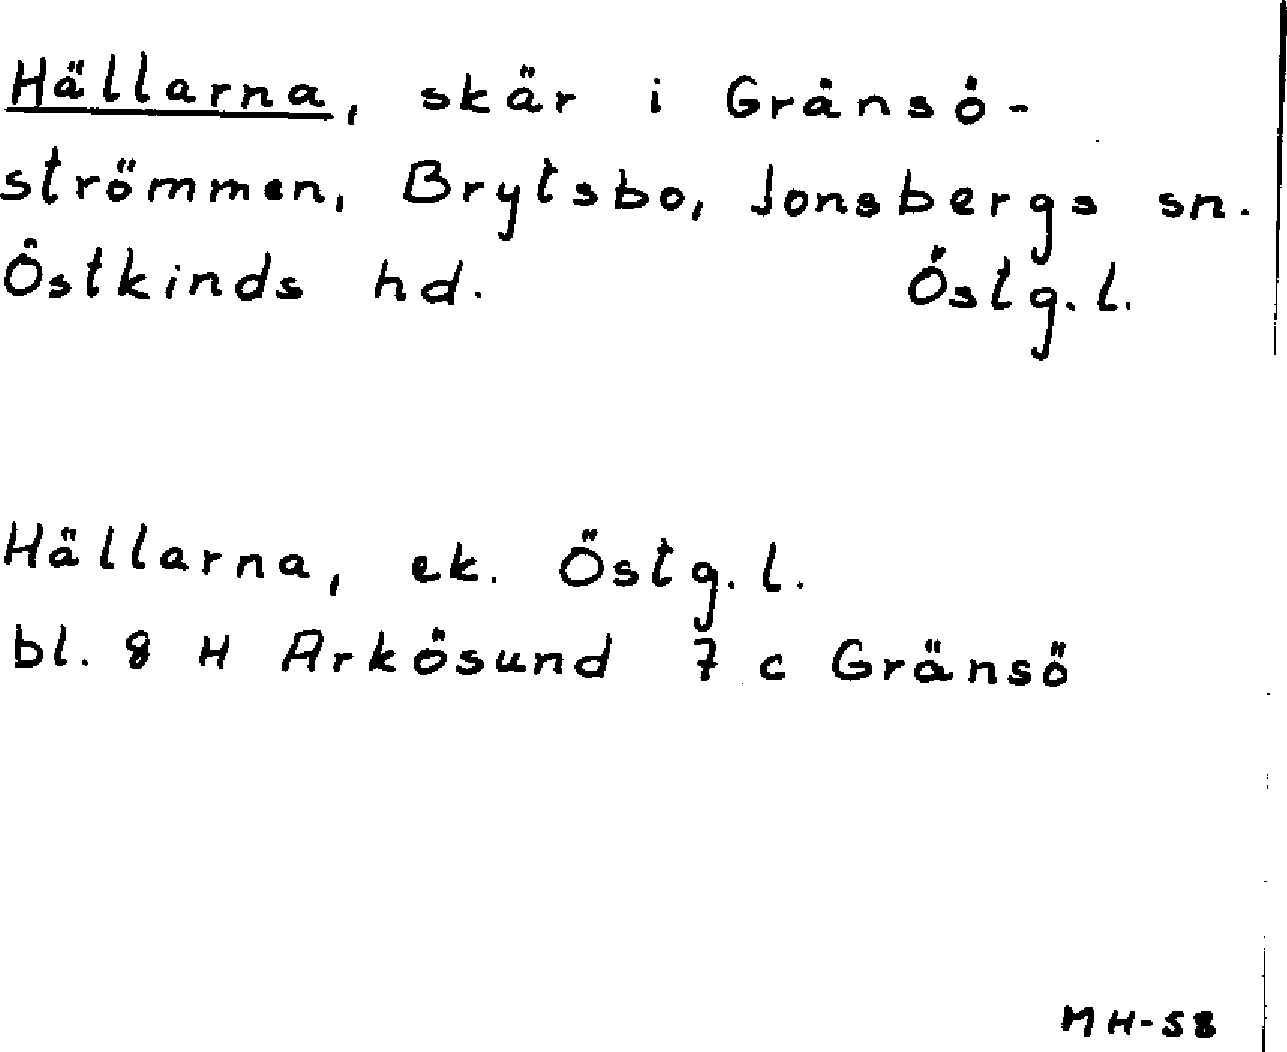 Hällarna, skär i Gränsö-
strömmen, Brytsbo, Jonsbergs sn.
Östkinds hd. Östg. l.
Hällarna, ek. Östg. l.
bl. 8 H Arkösund 7 c Gränsö
MH-58